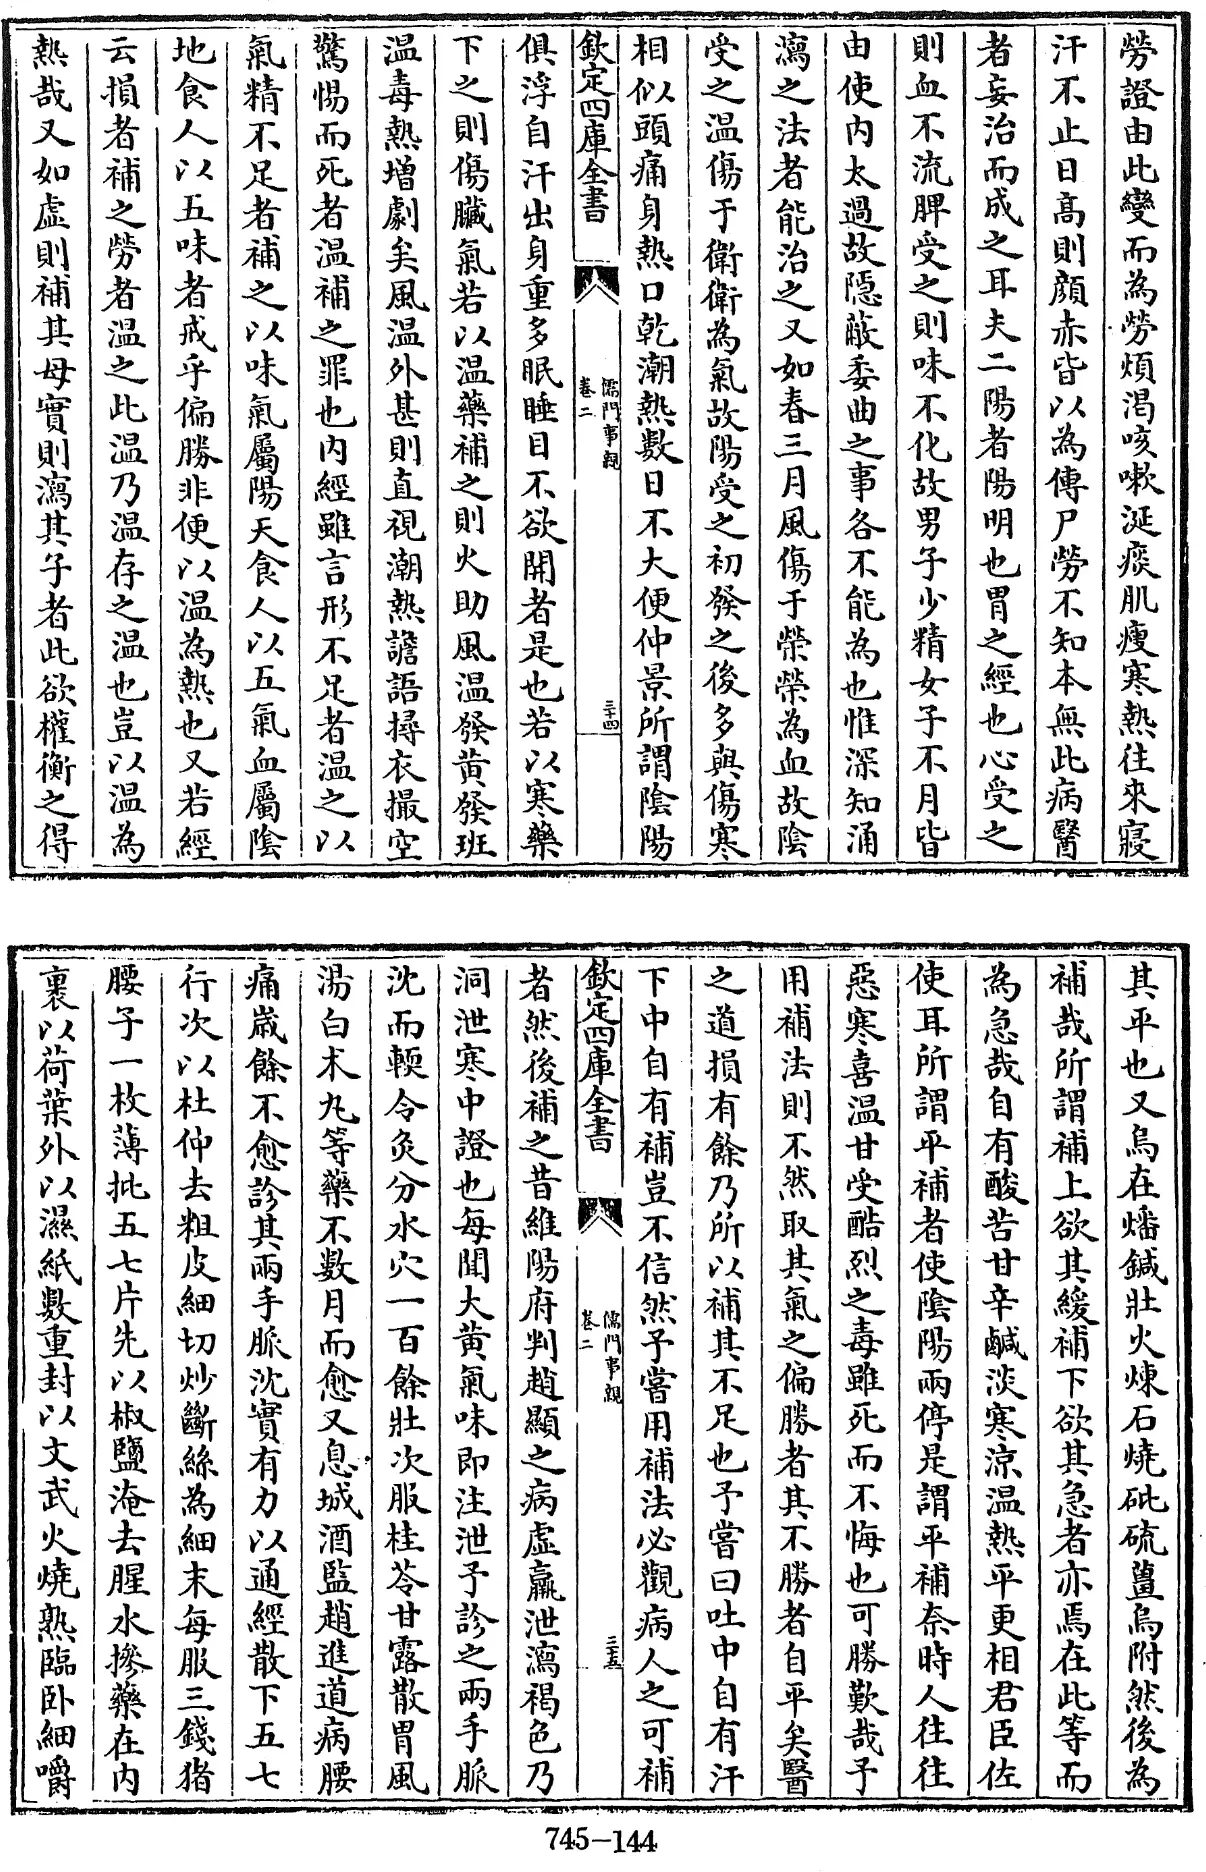 勞證由此變而為勞煩渴咳嗽涎痰肌瘦寒熱往來寢
汗不止日高則顔赤皆以為傳尸勞不知本無此病醫
者妄治而成之耳夫二陽者陽明也胃之經也心受之
則血不流脾受之則味不化故男子少精女子不月皆
由使内太過故隠蔽委曲之事各不能為也惟深知涌
瀉之法者能治之又如春三月風傷于榮榮為血故陰
受之温傷于衛衛為氣故陽受之初發之後多與傷寒
相似頭痛身熱口乾潮熱數日不大便仲景所謂陰陽
欽定四庫全書
儒門事親
卷二
三十四
俱浮自汗出身重多眠睡目不欲開者是也若以寒藥
下之則傷臟氣若以温藥補之則火助風温發黄發班
温毒熱增劇矣風温外甚則直視潮熱譫語撏衣撮空
驚惕而死者温補之罪也内經雖言形不足者温之以
氣精不足者補之以味氣屬陽天食人以五氣血屬陰
地食人以五味者戒乎偏勝非便以温為熱也又若經
云損者補之勞者温之此温乃温存之温也豈以温為
熱哉又如虛則補其母實則瀉其子者此欲權衡之得
其平也又烏在燔鍼壯火煉石燒砒硫薑烏附然後為
補哉所謂補上欲其緩補下欲其急者亦焉在此等而
為急哉自有酸苦甘辛鹹淡寒涼温熱平更相君臣佐
使耳所謂平補者使陰陽兩停是謂平補奈時人往往
惡寒喜温甘受酷烈之毒雖死而不悔也可勝歎哉予
用補法則不然取其氣之偏勝者其不勝者自平矣醫
之道損有餘乃所以補其不足也予嘗曰吐中自有汗
下中自有補豈不信然予嘗用補法必觀病人之可補
欽定四庫全書
儒門事親
卷二
三十五
者然後補之昔維陽府判趙顯之病虛羸泄瀉褐色乃
洞泄寒中證也每聞大黄氣味即注泄予診之兩手脈
沈而輭令灸分水穴一百餘壯次服桂苓甘露散胃風
湯白术丸等藥不數月而愈又息城酒監趙進道病腰
痛嵗餘不愈診其兩手脈沈實有力以通經散下五七
行次以杜仲去粗皮細切炒斷絲為細末每服三錢猪
腰子一枚薄批五七片先以椒鹽淹去腥水摻藥在内
裹以荷葉外以濕紙數重封以文武火燒熟臨卧細嚼
745-144